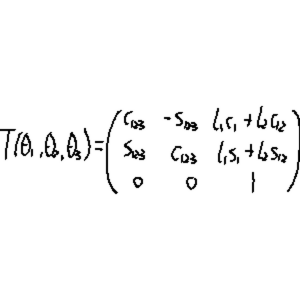 T(θ₁,θ₂,θ₃)=
c₁₂₃ -s₁₂₃ l₁c₁+l₂c₁₂
s₁₂₃ c₁₂₃ l₁s₁+l₂s₁₂
0 0 1